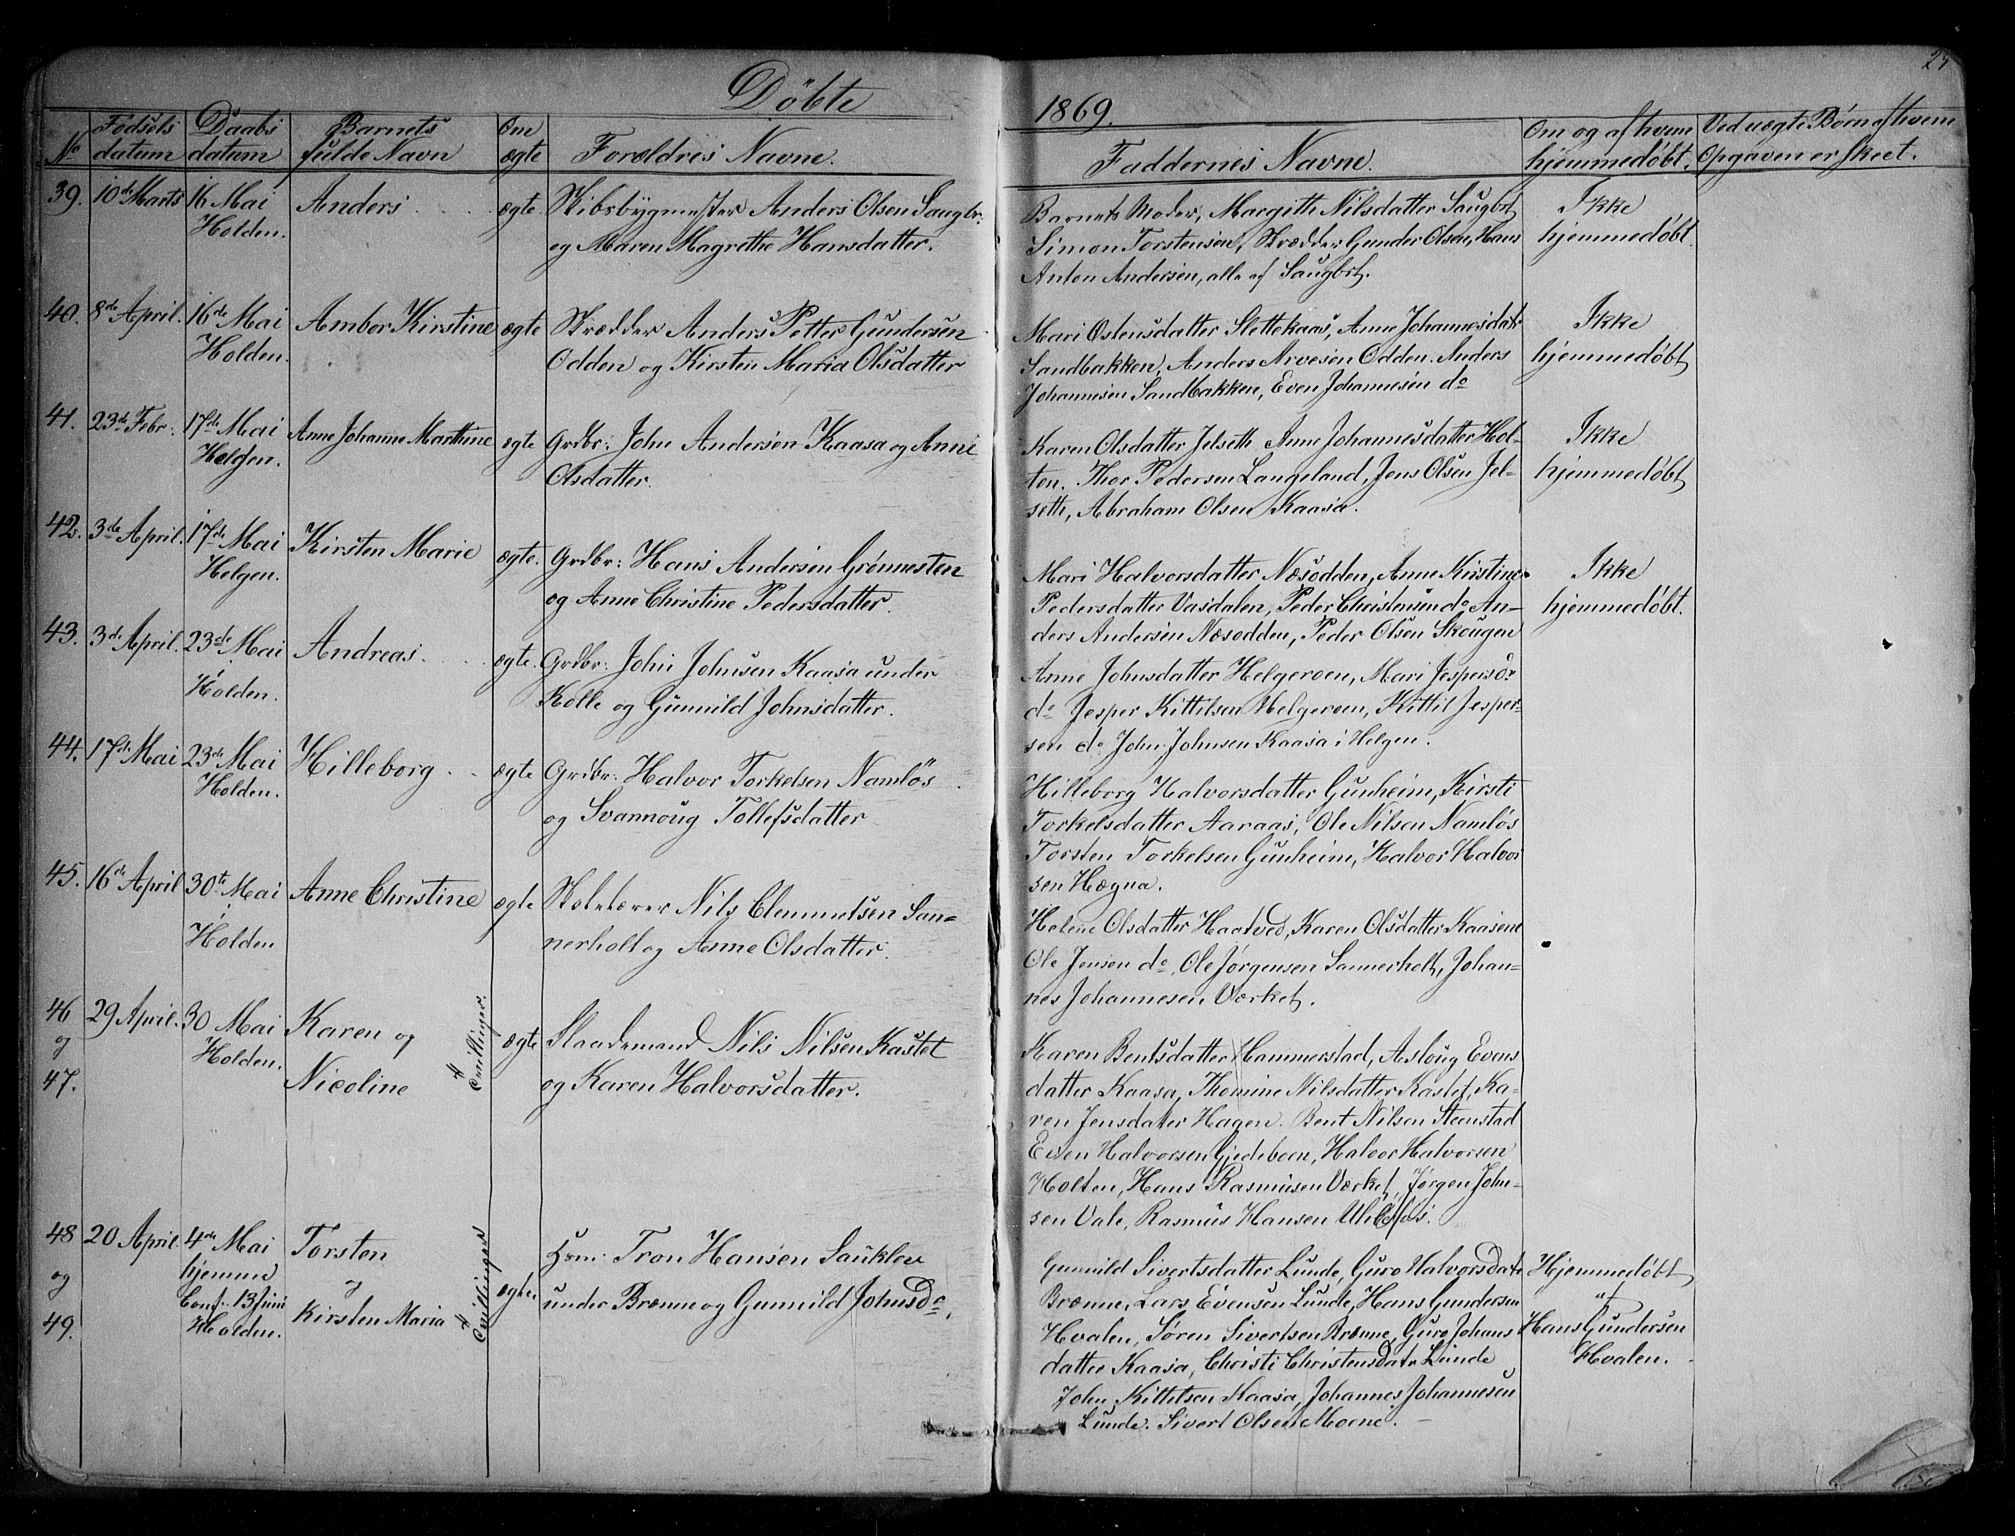 Døbte
1869.
No
Fødsels datum
Daabs datum
Barnets fulde Navn
Om ægte
Forældres Navne.
Faddernes Navne.
Om og af hvem hjemmedøbt.
Ved uægte Børn af hvem Opgaven er skeet.
39. 10de Marts 16 Mai Anders ægte. Skibsbygmester Anders Olsen Saugbr.
Holden. og Maren Magrethe Hansdatter.
Barnets Moder, Margith Nilsdatter Saugbrt Ikke
Simon Torstensen, Skrædder Gunder Olsen, Hans hjemmedøbt.
Anton Andersen, alle af Saugbrt.
40. 8de April. 16de Mai Ambor Kirstine ægte Skrædder Anders Petter Gundersen
Holden. Odden og Kirsten Maria Olsdatter
Mari Ostensdatter Slettekaas, Anne Johannesdatr Ikke
Sandbakken, Anders Arvesen Odden. Anders hjemmedøbt
Johannesen Sandbakken, Even Johannesen do
41. 23de Febr. 17de Mai Anne Johanne Marthine ægte Grdbr: John Andersen Kaasa og Anne
Helgen. Olsdatter.
Karen Olsdatter Jelseth, Anne Johannesdatter Hol- Ikke
ten. Thor Pedersen Langeland, Jens Olsen Jel- hjemmedøbt
seth, Abraham Olsen Kaasa.
42. 3de April. 17de Mai Kirsten Marie ægte. Grdbr: Hans Andersen Grønnesten
Helgen. og Anne Christine Pedersdatter.
Mari Halvorsdatter Næsodden, Anne Kirstine Ikke
Pedersdatter Vasdalen, Peder Christensen do An- hjemmedøbt.
ders Andersen Næsodden, Peder Olsen Skougen
43. 3de April. 23de Mai Andreas. ægte. Grdbr: John Johnsen Kaasa under
i Holden. Kolle og Gunnild Johnsdatter.
Anne Johnsdatter Helgeroen, Mari Jespersdr
do Jesper Kittilsen Helgeroen, Kittil Jesper-
sen do John Johnsen Kaasa i Helgen.
44. 17de Mai 23de Mai Hilleborg ægte Grdbr: Halvor Torkelsen Namløs
Holden. og Svannoug Tollefsdatter
Hilleborg Halvorsdatter Gunheim, Kirsti
Torkelsdatter Aaraas, Ole Nilsen Namløs
Torsten Torkelsen Gunheim, Halvor Halvor
sen Hægna.
45. 16de April 30te Mai Anne Christine ægte Skolelærer Nils Clemmetsen San-
i Holden nerholt og Anne Olsdatter.
Helene Olsdatter Haatved, Karen Olsdatter Kaasene
Ole Jensen do, Ole Jørgensen Sannerholt, Johan-
nes Johannesen Værket.
46 29 April. 30 Mai Karen og Tvillinger. ægte Slaademand Nils Nilsen Kastet
og Holden. Nicoline og Karen Halvorsdatter.
47.
Karen Bentsdatter Hammerstad, Asloug Evens
datter Kaasa, Thomine Nilsdatter Kastet, Ka-
ren Jensdatter Hagen. Bent Nilsen Steenstad
Even Halvorsen Gjedeboen, Halvor Halvorsen
Holten, Hans Rasmusen Værket, Jørgen John-
sen Vale, Rasmus Hansen Ulefos.
48 20 April. 4de Mai Torsten Tvillinger ægte. Hsm: Tron Hansen Sauklev
og hjemme og under Brænne og Gunnild Johnsdr
49. Conf. 13 Juni Kirsten Maria
Holden.
Gunnild Sivertsdatter Lunde, Guro Halvorsdatr Hjemmedøbt
Brænne, Lars Evensen Lunde, Hans Gundersen af
Hvalen, Søren Sivertsen Brænne, Guro Johans Hans Gundersen
datter Kaasa, Christi Christensdatr Lunde Hvalen.
John Kittilsen Kaasa, Johannes Johannesen
Lunde. Sivert Olsen Moene.